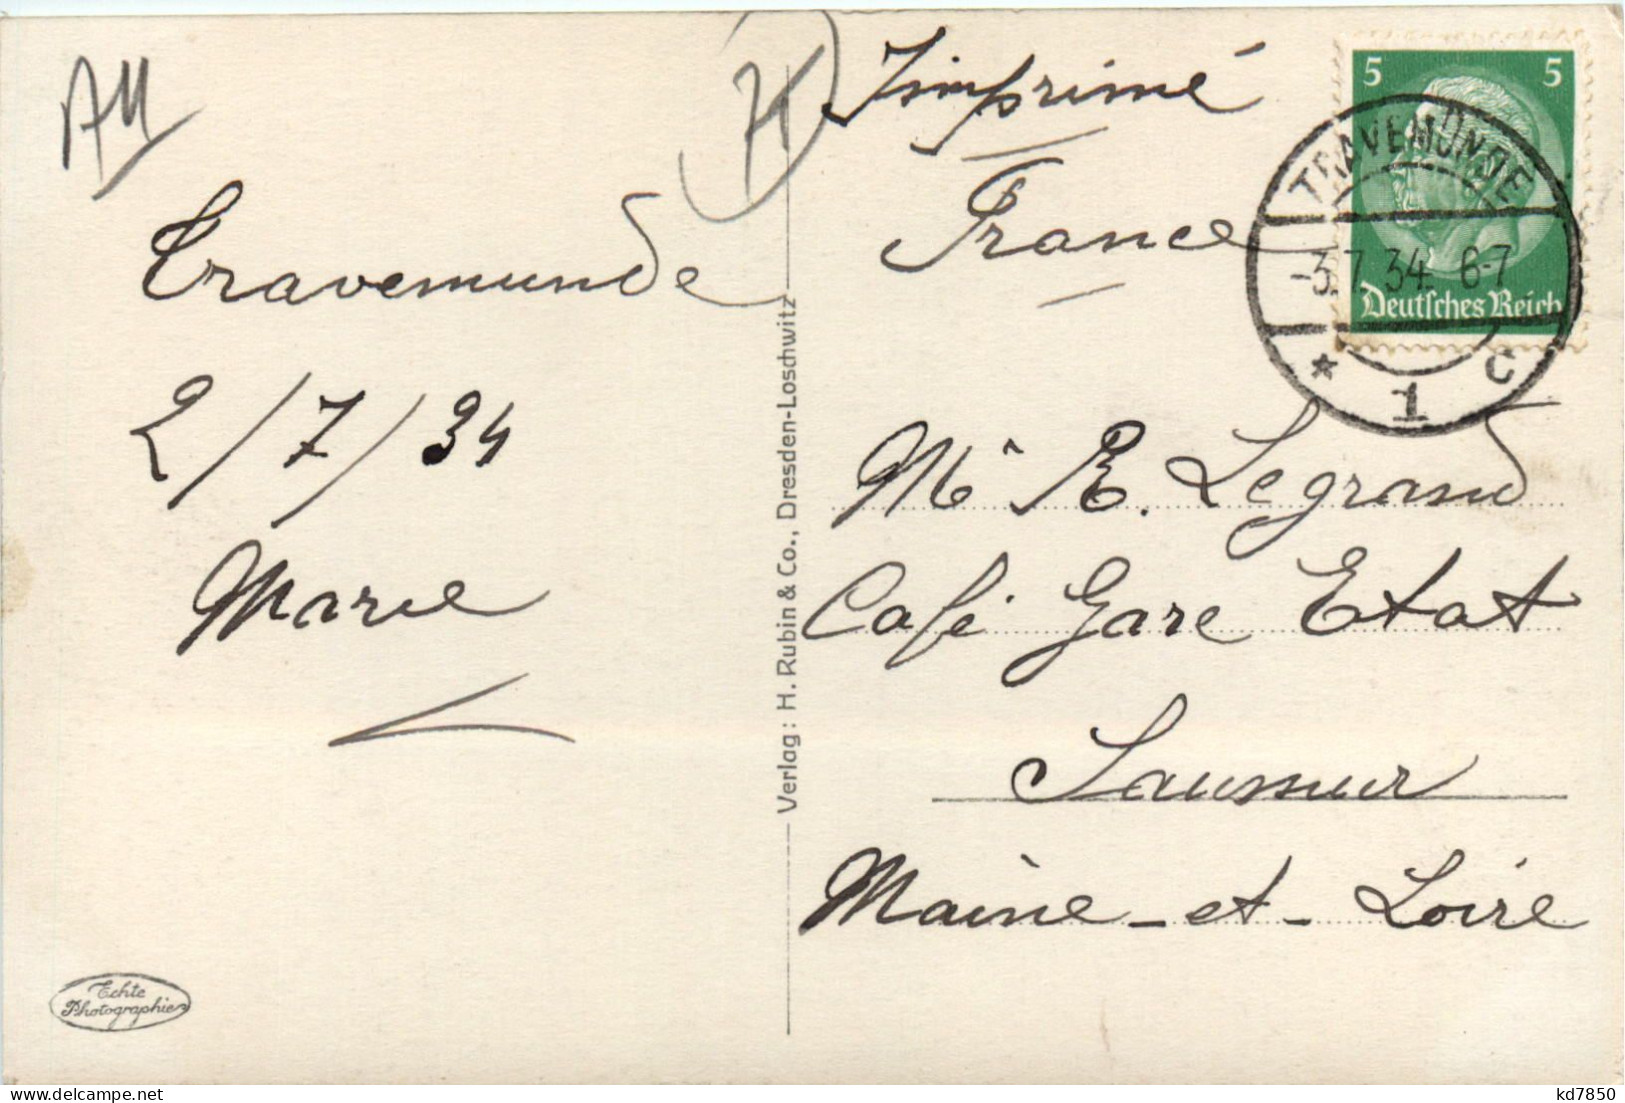 All
71
Imprimé
France
5 5
TRAVEMÜNDE
-3.7.34. 6-7
Deutsches Reich
* 1 c
Travemunde
2/7/34
Marie
Verlag: H. Rubin & Co., Dresden-Loschwitz
Mr R. Legrand
Café Gare Etat
Saumur
Maine-et-Loire
Echte
Photographie
kd7850